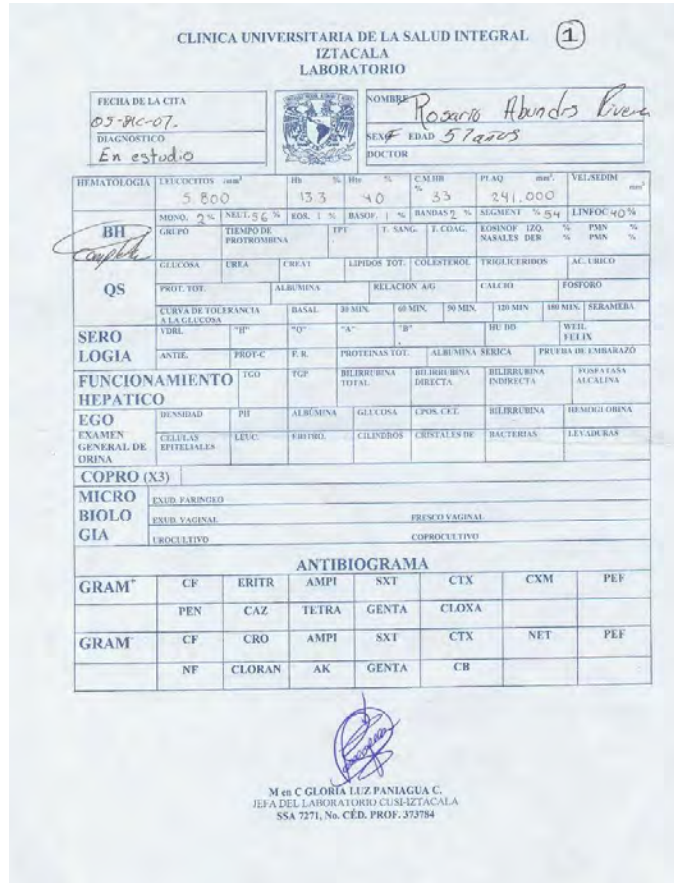 CLINICA UNIVERSITARIA DE LA SALUD INTEGRAL
IZTACALA
LABORATORIO
1
FECHA DE LA CITA
05-DIC-07.
DIAGNOSTICO
En estudio
NOMBRE Rosario Abundis Rivera
SEXO F EDAD 57 años
DOCTOR
HEMATOLOGIA LEUCOCITOS mm³ Hb % Hto % C.M.HB % PLAQ mm³. VEL.SEDIM mm³
5 800 13.3 40 33 241,000
BH Completa
MONO. 2% NEUT. 56 % EOS. 1 % BASOF. 1 % BANDAS 2 % SEGMENT % 54 LINFOC 40 %
GRUPO TIEMPO DE PROTROMBINA TPT T. SANG. T. COAG. EOSINOF IZQ. % PMN %
NASALES DER % PMN %
QS
GLUCOSA UREA CREAT LIPIDOS TOT. COLESTEROL TRIGLICERIDOS AC. URICO
PROT. TOT. ALBUMINA RELACION A/G CALCIO FOSFORO
CURVA DE TOLERANCIA A LA GLUCOSA BASAL 30 MIN. 60 MIN. 90 MIN. 120 MIN 180 MIN.
SERO
LOGIA
VDRL "H" "O" "A" "B" WEIL FELIX
PROT-C F. R. PROTEINAS TOT. ALBUMINA SERICA PRUEBA DE EMBARAZO
FUNCIONAMIENTO
HEPATICO
TGO TGP BILIRRUBINA TOTAL BILIRRUBINA DIRECTA BILIRRUBINA INDIRECTA FOSFATASA ALCALINA
EGO
EXAMEN
GENERAL DE
ORINA
DENSIDAD PH ALBÚMINA GLUCOSA CPOS. CET. BILIRRUBINA HEMOGLOBINA
CELULAS EPITELIALES LEUC. ERITRO. CILINDROS CRISTALES DE BACTERIAS LEVADURAS
COPRO (X3)
MICRO
BIOLO
GIA
EXUD. FARINGEO
EXUD. VAGINAL FRESCO VAGINAL
UROCULTIVO COPROCULTIVO
ANTIBIOGRAMA
GRAM+ CF ERITR AMPI SXT CTX CXM PEF
PEN CAZ TETRA GENTA CLOXA
GRAM- CF CRO AMPI SXT CTX NET PEF
NF CLORAN AK GENTA CB
M en C GLORIA LUZ PANIAGUA C.
JEFA DEL LABORATORIO CUSI-IZTACALA
SSA 7271, No. CÉD. PROF. 373784